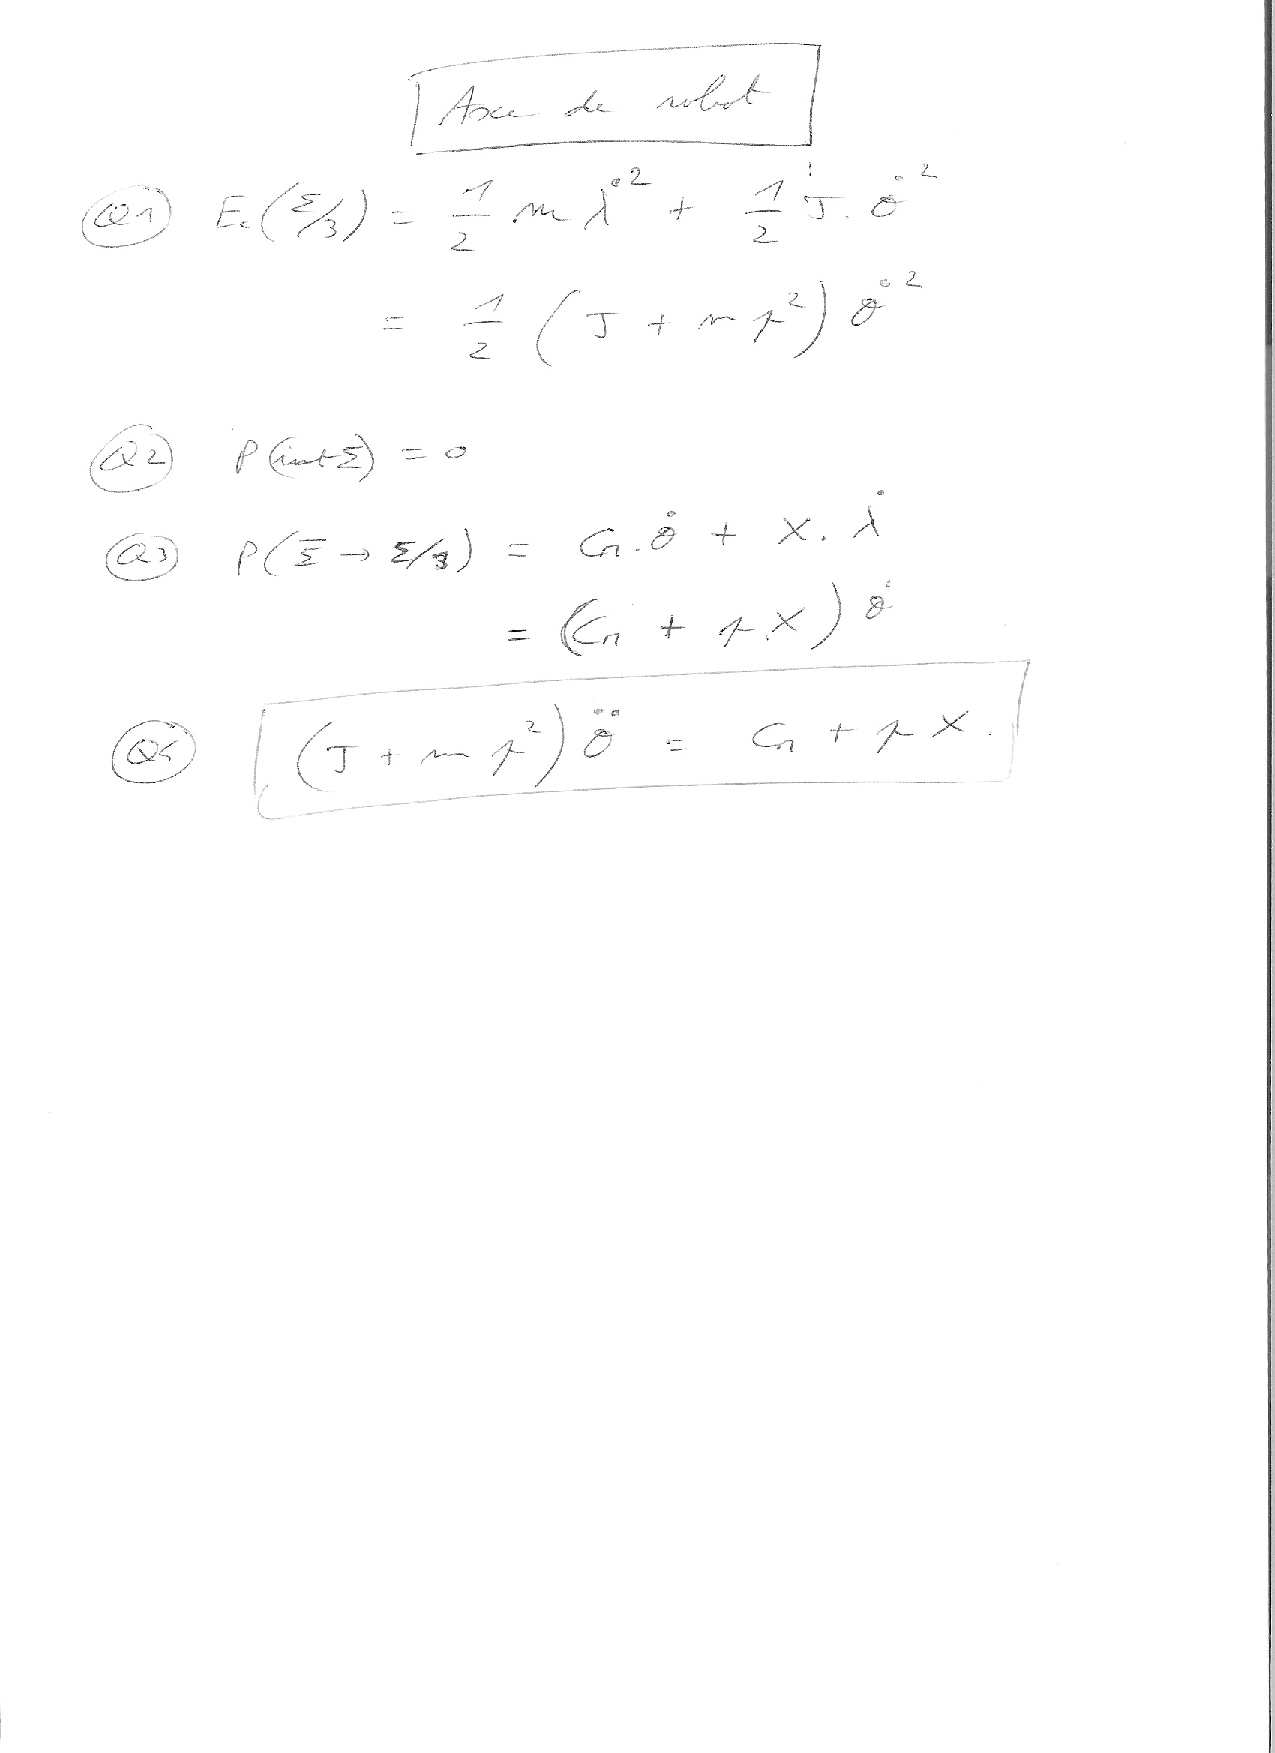 Axe de robot
Q1 Ec(Σ/3) = 1/2 m λ̇² + 1/2 J. θ̇²
= 1/2 (J + m p²) θ̇²
Q2 P(intΣ) = 0
Q3 P(Σ̄ → Σ/3) = Cm. θ̇ + X. λ̇
= (Cm + p.X) θ̇
Q4 (J + m p²) θ̈ = Cm + p X.